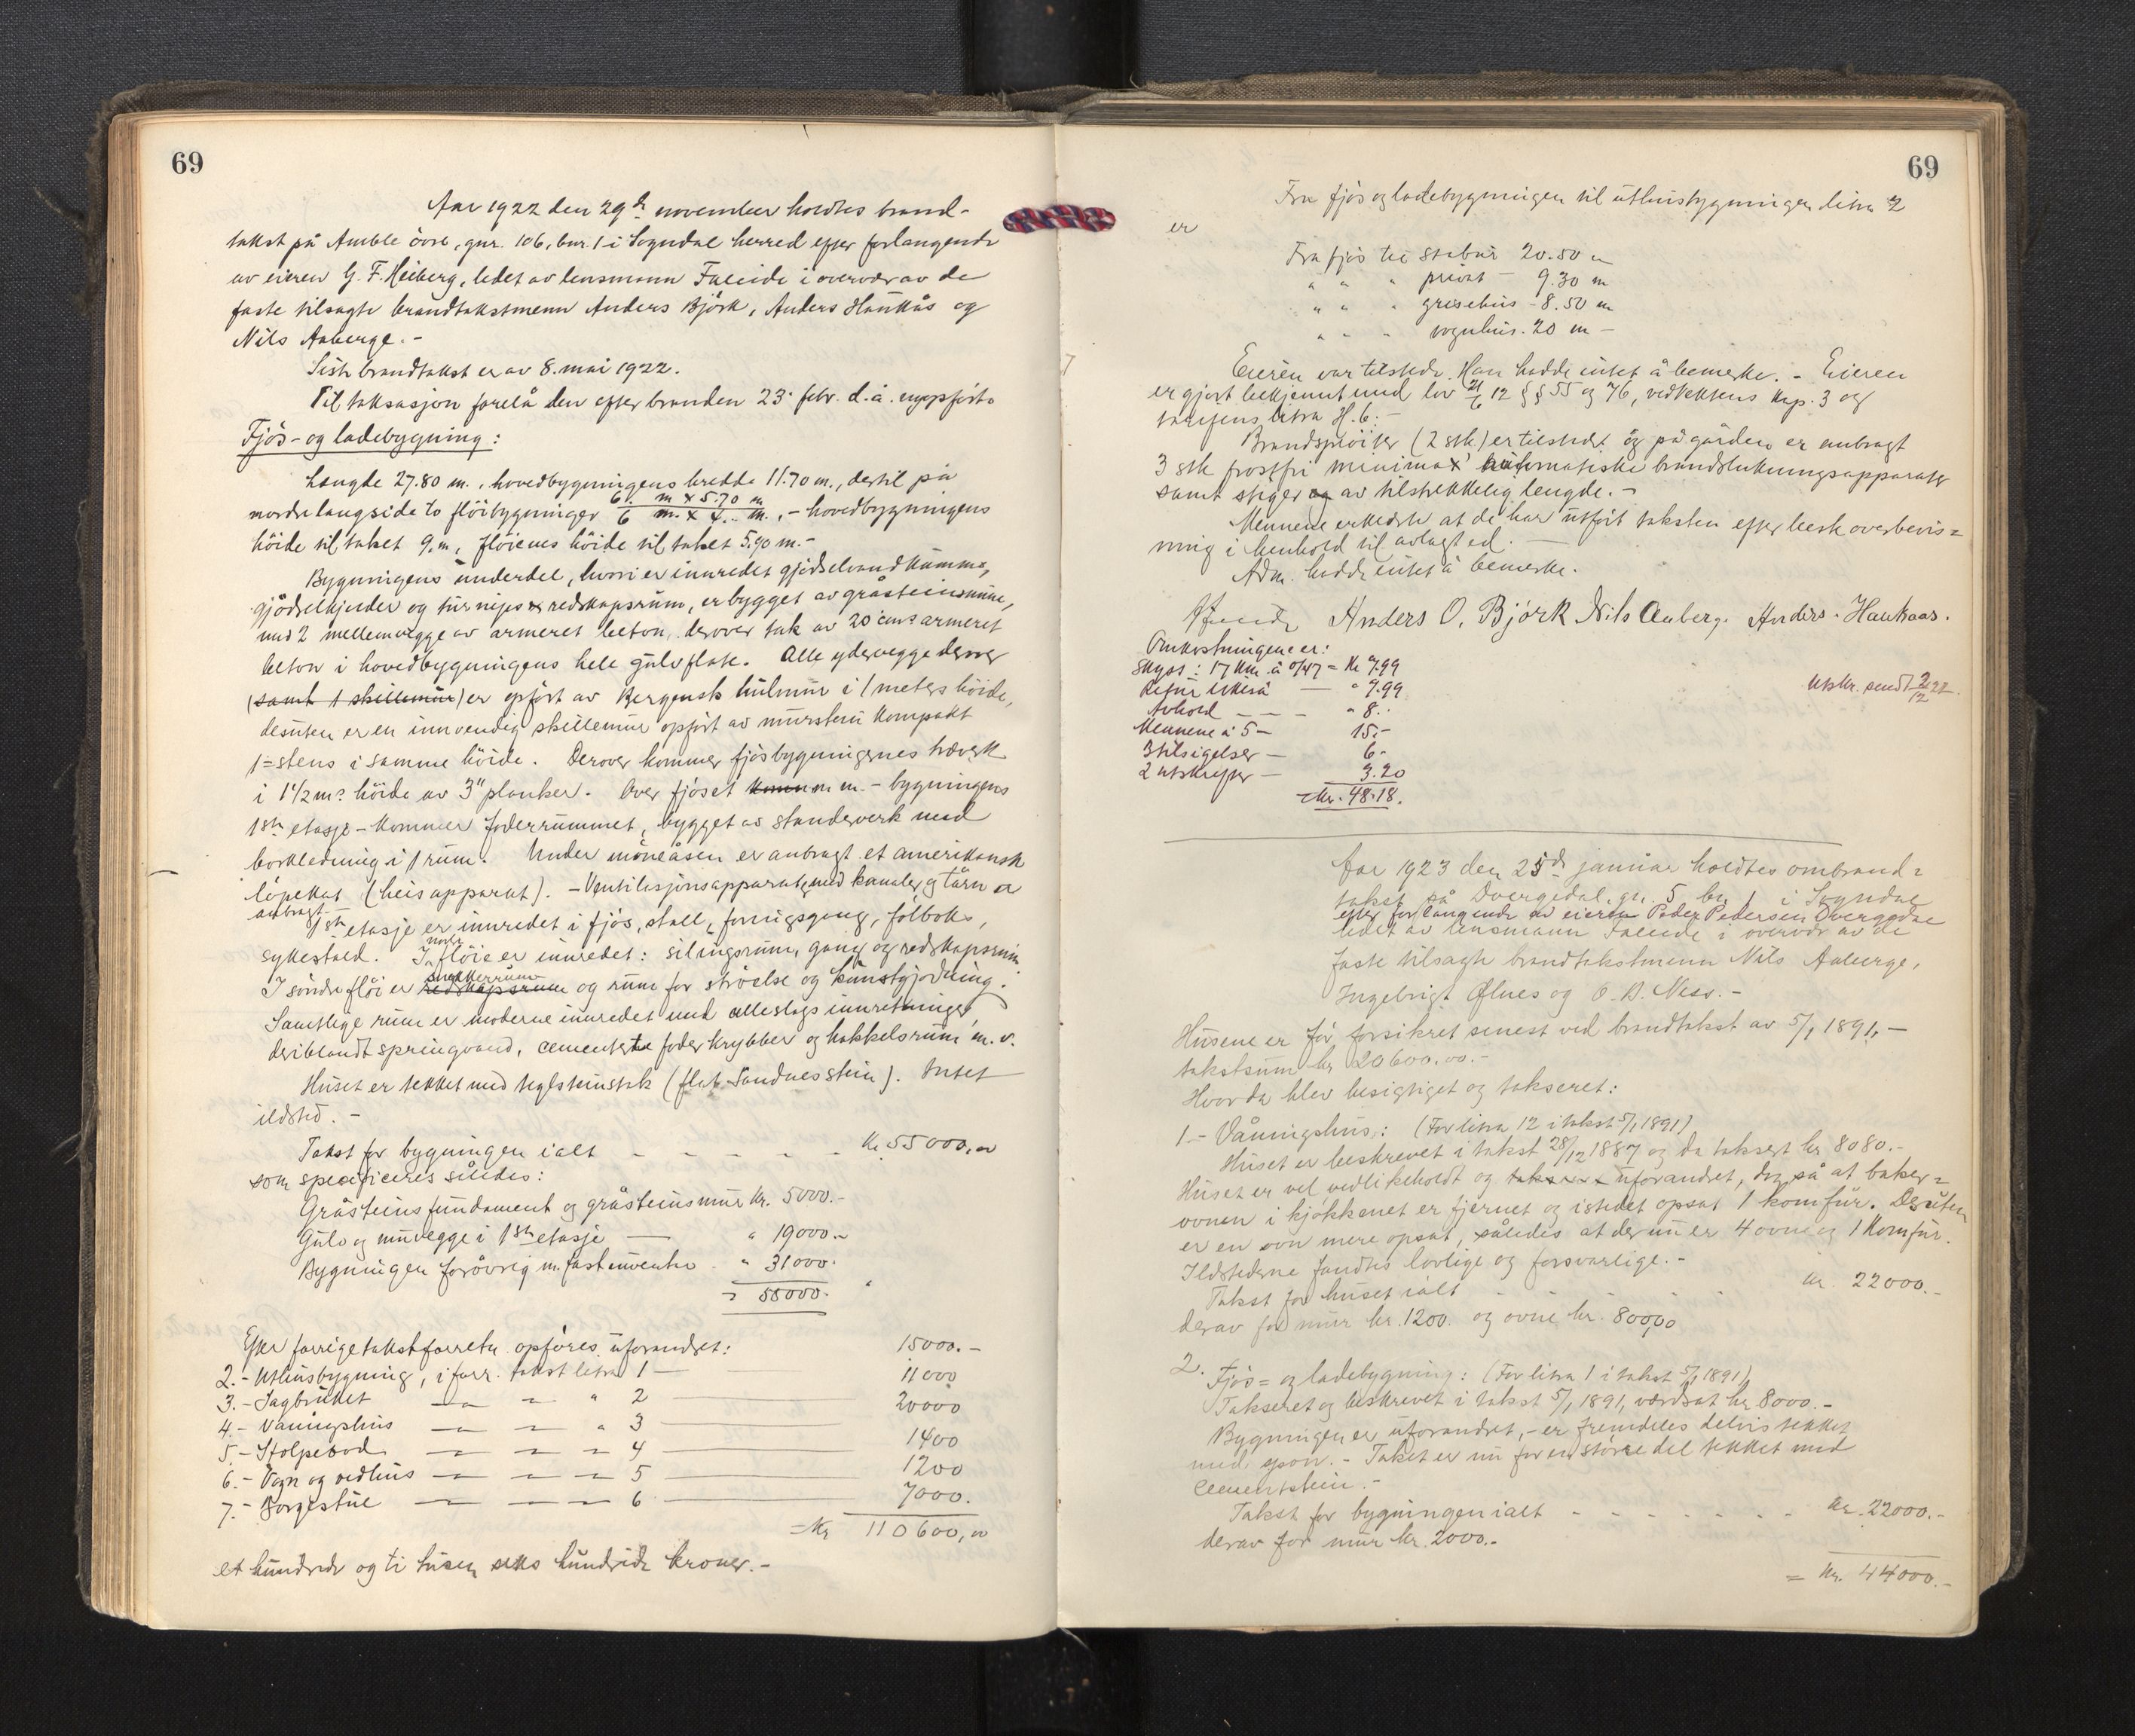 69
Aar 1922 den 29de november holdtes brand-
takst på Amble övre, gnr. 106, bnr. 1 i Sogndal herred efter forlangende
av eieren G. F. Heiberg, ledet av lensmann Faleide i overvær av de
faste tilsagte brandtakstmenn Anders Björk, Anders Haukås og
Nils Aaberge. -
Siste brandtakst er av 8. mai 1922.
Til taksasjon forelå den efter branden 23. febr. d.å. nyopförte
Fjös- og ladebygning:
Længde 27.80 m., hovedbygningens bredde 11.70 m., dertil på
6. m x 5.70 m
nordre langside to flöibygninger 6 m. x 4.. m., - hovedbygningens
höide til taket 9. m, flöienes höide til taket 5.90 m. -
Bygningens underdel, hvori er innredet gjödselvandkumme,
gjödselkjelder og turnips & redskapsrum, er bygget av gråsteinsmure,
med 2 mellemvegge av armeret beton, derover tak av 20 cm. armeret
beton i hovedbygningens hele gulvflate. Alle ydervegge derover
(samt 1 skillemur) er opfört av Bergensk hulmur i 1 meters höide,
desuten er en innvendig skillemur opfört av murstein kompakt
1=stens i samme höide. Derover kommer fjösbygningenes træverk
i 1 1/2 m. höide av 3" planker. Over fjöset m. m. - bygningens
1ste etasje - kommer foderrummet, bygget av standerverk med
bordkledning i 1 rum. Under möneåsen er anbragt et amerikansk
löpekat (heisapparat). - Ventilasjonsapparater med kanaler og tårn er
anbragt.
1ste etasje er innredet i fjös, stall, foringsgang, folboks,
nordre
sykestald. I flöie er innredet: silingsrum, gang og redskapsrum
snekkerrum
I söndre flöi er redskapsrum og rum for ströelse og kunstgjödning.
Samtlige rum er moderne innredet med alleslags innretninger,
deriblandt springvand, cementerte foderkrybber og hakkelsrum m. v.
Huset er tekket med teglsteinstak (flat Sandnesstein). Intet
ildsted. -
Takst for bygningen ialt - - - - - - Kr. 55000,00
som specificeres således:
Gråsteinsfundament og gråsteinsmur kr. 5000.-
Gulv og murvegge i 1ste etasje — " 19000.-
Bygningen forövrig m. fast inventar " 31000.
= 55000.
Efter forrige takstforretn. opföres uforandret:
15000.-
2.- Uthusbygning, i forr. takst litra 1 — 11000
3.- Sagbruket — " — " 2 — 20000
4.- Våningshus — — " 3
5.- Stolpebod — — — 4 — 1400
6.- Vogn og vedhus — — — 5 — 1200
7.- Borgestue — — — 6 — 7000.
= Kr 110600,00
et hundrede og ti tusen seks hundrede kroner. -
69
Fra fjös og ladebygningen til uthusbygningen litra 2
er
Fra fjös til stabur 20.50 m
" " " privat - 9.30 m
" " " grisehus - 8.50 m
" " " vognhus. 20 m -
Eieren var tilstede. Han hadde intet å bemerke. - Eieren
er gjort bekjennt med lov 21/6 12 §§ 55 og 76, vedtektens kap. 3 og
tarifens litra H. 6. -
Brandspröiter (2 stk.) er tilstede og på gården er anbragt
3 stk frostfri 'minimax' automatiske brandslukningsapparater
samt stiger og av tilstrekkelig lengde. -
Mennene erklerte at de har utfört taksten efter beste overbevis=
ning i henhold til avlagt ed. —
Adm. hadde intet å bemerke.
Faleide Anders O. Björk Nils Aaberge Anders Haukaas.
Omkostningene er:
Skyss: 17 km. á 0/47 = Kr 7.99
Retur likeså — " 7.99
Avhold - - - " 8..
Mennene á 5 - 15.-
3 tilsigelser — 6-
2 utskrifter — 3.20
Kr. 48.18.
Utskr. sendt 2/12 22.
Aar 1923 den 25de januar holdtes ombrand=
takst på Dvergedal, gn. 5 bn. 1 i Sogndal
efter forlangende av eieren Peder Pedersen Dvergedal
ledet av lensmann Faleide i overvær av de
faste tilsagte brandtakstmenn Nils Aaberge,
Ingebrigt Ølnes og O. D. Ness. -
Husene er för forsikret senest ved brandtakst av 5/1 1891, -
takstsum kr 20600.00. -
Hvorda blev besigtiget og takseret:
1 - Våningshus: (For litra 12 i takst 5/1 1891)
Huset er beskrevet i takst 28/12 1887 og da taksert kr 8080.-
Huset er vel vedlikeholdt og uforandret, dog så at baker=
ovnen i kjökkenet er fjernet og istedet opsat 1 komfur. Desuten
er en ovn mere opsat, således at der nu er 4 ovne og 1 Komfur.
Ildstederne fandtes lovlige og forsvarlige. -
Takst for huset ialt - - - - kr. 22000.-
derav for mur kr. 1200. og ovne kr. 800,00
2. Fjös= og ladebygning: (For litra 1 i takst 5/1 1891)
Takseret og beskrevet i takst 5/1 1891, værdsat kr 8000.-
Bygningen er uforandret, - er fremdeles delvis tekket
med spon. - Taket er nu for en större del tekket med
Cementstein. -
Takst for bygningen ialt - - - - - - - kr. 22000.-
derav for mur kr. 2000.-
= Kr. 44000.-